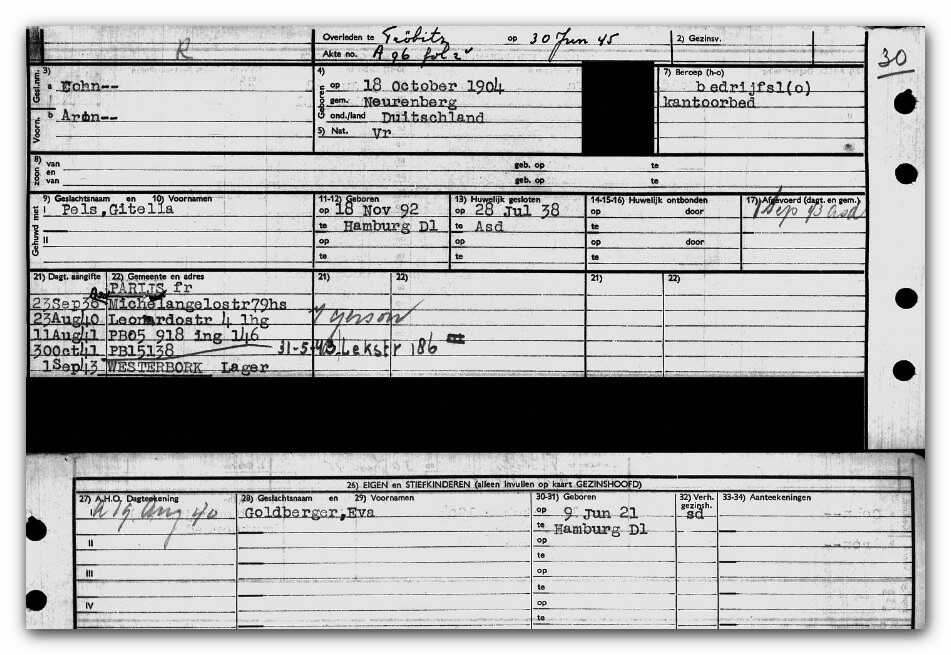 R
Overleden te Tröbitz op 30 Jun 45
2) Gezinsv.
Akte no. A 96 fol 2v
30
Gesl.nm.
Voorn.
3)
a Cohn--
b Aron--
4)
Geboren
op 18 October 1904
gem. Neurenberg
ond./land Duitschland
5) Nat. Vr
7) Beroep (h-o)
bedrijfsl(o)
kantoorbed
8)
zoon
van
en
van
geb. op te
geb. op te
Gehuwd met
9) Geslachtsnaam en 10) Voornamen
I Pels,Gitella
II
11-12) Geboren
op 18 Nov 92
te Hamburg Dl
op
te
13) Huwelijk gesloten
op 28 Jul 38
te Asd
op
te
14-15-16) Huwelijk ontbonden
op door
te
op door
te
17) Afgevoerd (dagt. en gem.)
1 Sep 43 asd
21) Dagt. aangifte 22) Gemeente en adres 21) 22) 21) 22)
PARIJS fr
23Sep38 Michelangelostr79hs
23Aug40 Leonardostr 4 1hg
11Aug41 PB05 918 ing 146
30Oct41 PB15138 31-5-43 Lekstr 186
1Sep43 WESTERBORK Lager
26) EIGEN en STIEFKINDEREN (alleen invullen op kaart GEZINSHOOFD)
27) A.H.O. Dagteekening 28) Geslachtsnaam en 29) Voornamen 30-31) Geboren 32) Verh. gezinsh. 33-34) Aanteekeningen
19 Aug 40 Goldberger,Eva op 9 Jun 21 sd
te Hamburg Dl
II op
te
III op
te
IV op
te